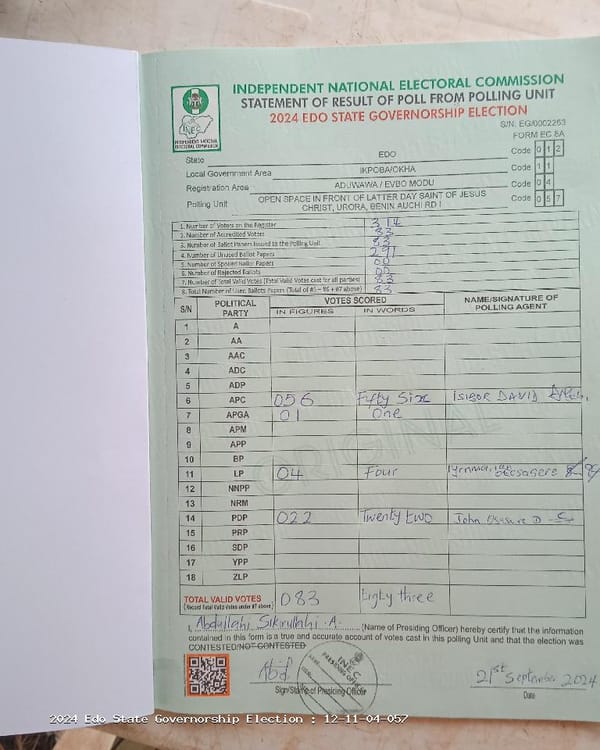 INDEPENDENT NATIONAL ELECTORAL COMMISSION
STATEMENT OF RESULT OF POLL FROM POLLING UNIT
2024 EDO STATE GOVERNORSHIP ELECTION
S/N: EG/0002253
FORM EC 8A
INEC
INDEPENDENT NATIONAL ELECTORAL COMMISSION
State EDO Code 0 1 2
Local Government Area IKPOBA/OKHA Code 1 1
Registration Area ADUWAWA / EVBO MODU Code 0 4
Polling Unit OPEN SPACE IN FRONT OF LATTER DAY SAINT OF JESUS CHRIST, URORA, BENIN AUCHI RD I Code 0 5 7
1. Number of Voters on the Register 314
2. Number of Accredited Voters 83
3. Number of Ballot Papers Issued to the Polling Unit
4. Number of Unused Ballot Papers
5. Number of Spoiled Ballot Papers 00
6. Number of Rejected Ballots 00
7. Number of Total Valid Votes (Total Valid Votes cast for all parties) 83
8. Total Number of Used Ballots Papers (Total of #5 + #6 + #7 above) 83
S/N POLITICAL PARTY VOTES SCORED NAME/SIGNATURE OF POLLING AGENT
IN FIGURES IN WORDS
1 A
2 AA
3 AAC
4 ADC
5 ADP
6 APC 056 Fifty Six ISIBOR DAVID
7 APGA 01 One
8 APM
9 APP
10 BP
11 LP 04 Four
12 NNPP
13 NRM
14 PDP 022 Twenty two John D
15 PRP
16 SDP
17 YPP
18 ZLP
ORIGINAL
TOTAL VALID VOTES 083 Eighty three
(Record Total Valid Votes under #7 above)
I, Abdullahi Sikirullahi .A. (Name of Presiding Officer) hereby certify that the information
contained in this form is a true and accurate account of votes cast in this polling Unit and that the election was
CONTESTED/NOT CONTESTED
INEC
PRESIDING OFFICER
Abd
21st September 2024
Sign/Stamp of Presiding Officer
Date
2024 Edo State Governorship Election : 12-11-04-057